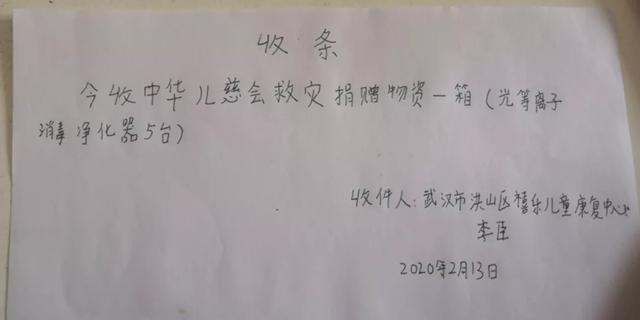 收条
今收中华儿慈会救灾捐赠物资一箱(光等离子
消毒净化器5台)
收件人:武汉市洪山区禧乐儿童康复中心
李臣
2020年2月13日